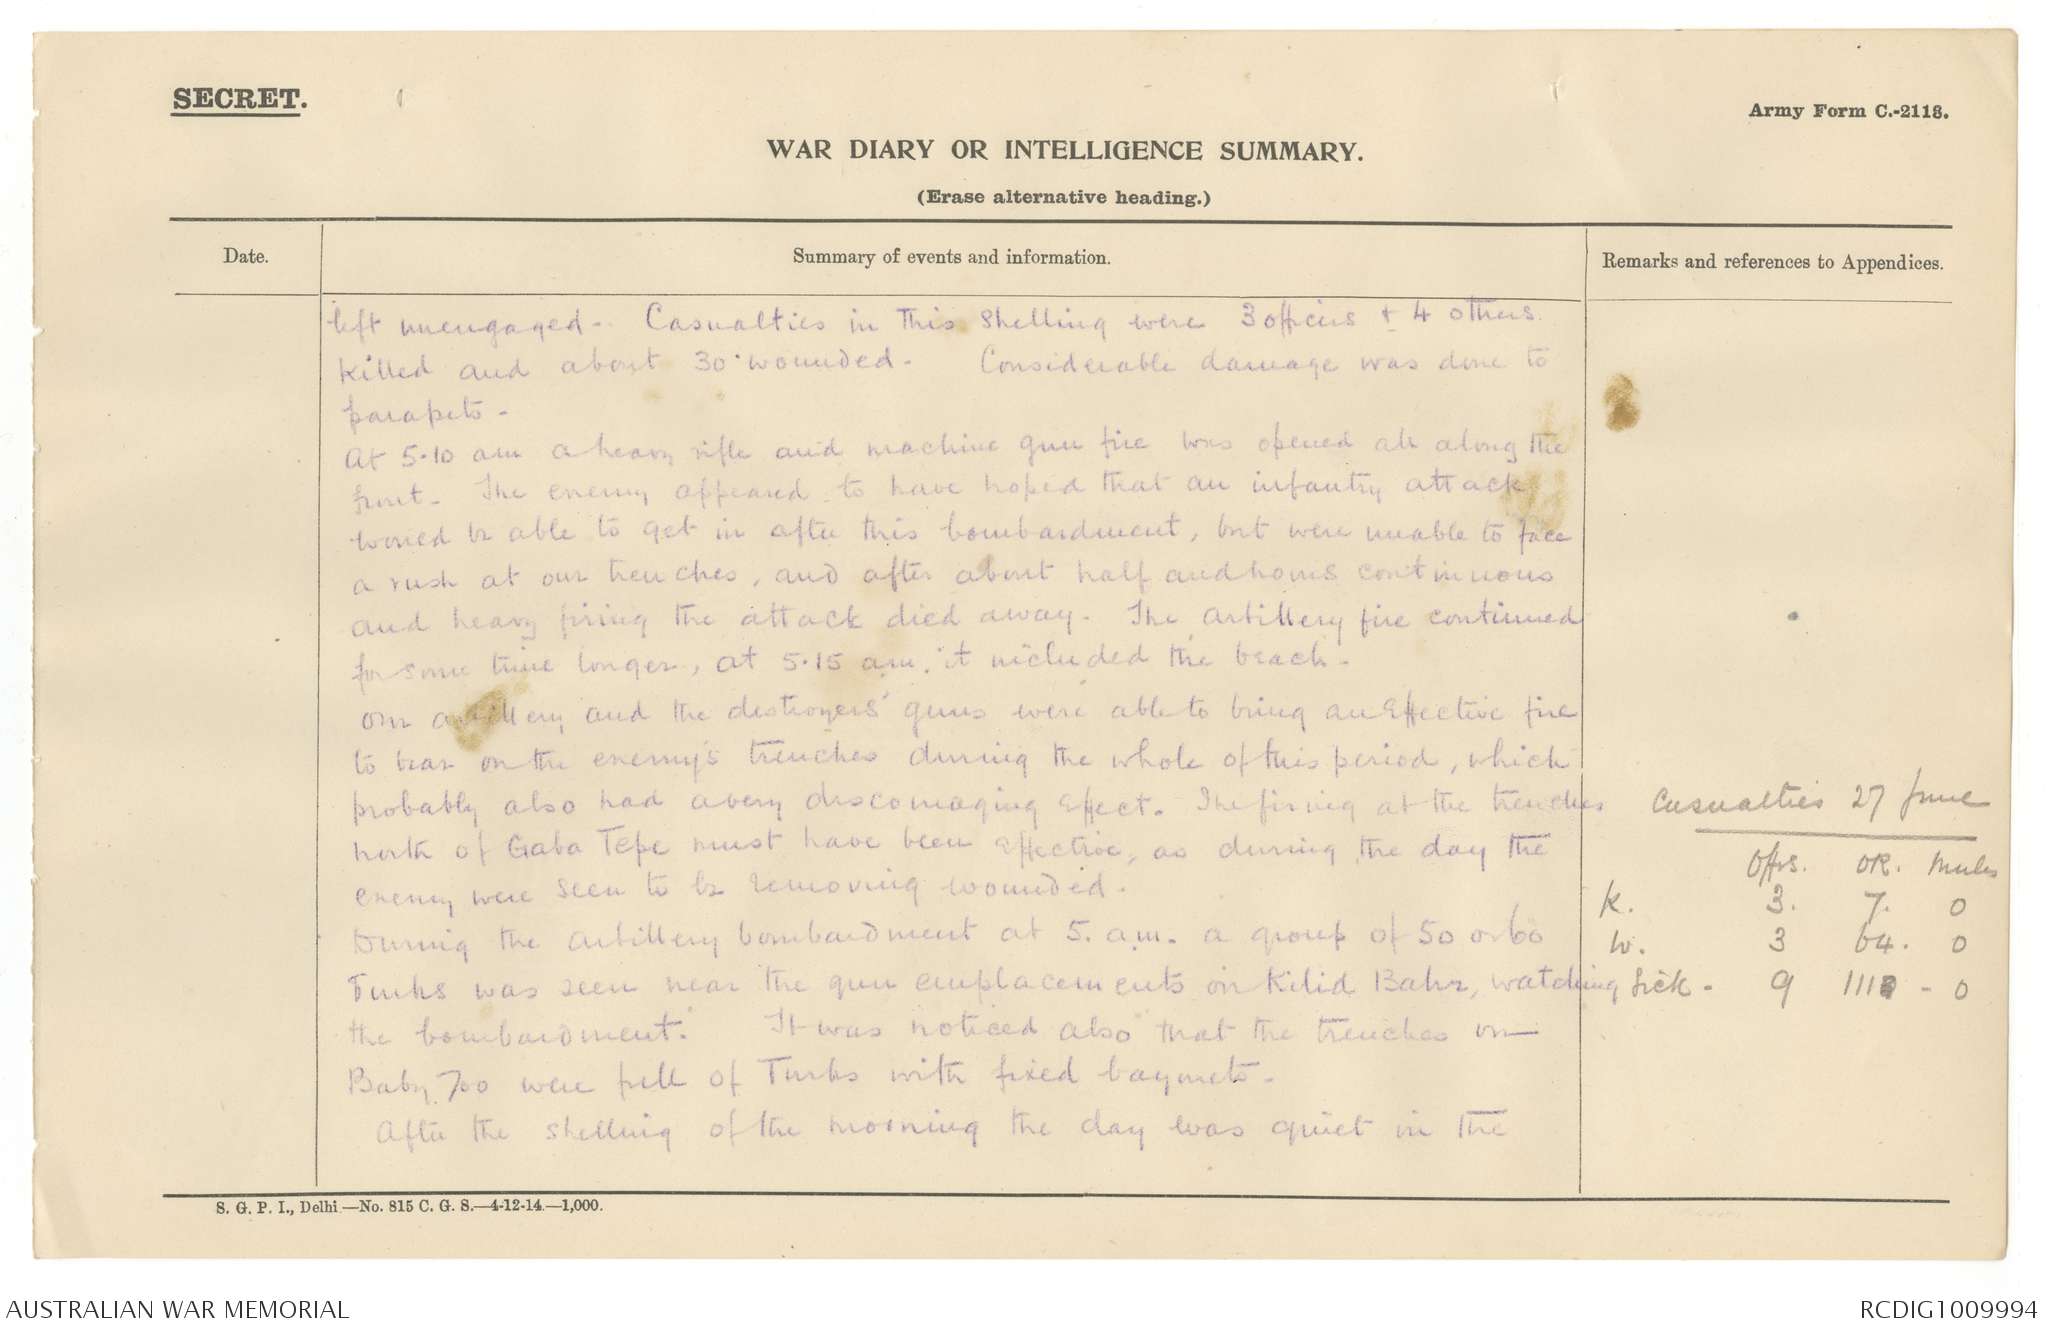 SECRET.
Army Form C.-2118.
WAR DIARY OR INTELLIGENCE SUMMARY.
(Erase alternative heading.)
Date.
Summary of events and information.
Remarks and references to Appendices.
left unengaged- Casualties in this shelling were 3 officers & 4 others
killed and about 30 wounded- Considerable damage was done to
parapets-
At 5.10 am a heavy rifle and machine gun fire was opened all along the
front- The enemy appeared to have hoped that an infantry attack
would be able to get in after this bombardment, but were unable to face
a rush at our trenches, and after about half an hours continuous
and heavy firing the attack died away. The artillery fire continued
for some time longer, at 5.15 am. it included the beach-
Our artillery and the destroyers' guns were able to bring an effective fire
to bear on the enemy's trenches during the whole of this period, which
probably also had a very discouraging effect. The firing at the trenches
north of Gaba Tepe must have been effective, as during the day the
enemy were seen to be removing wounded.
During the artillery bombardment at 5. a.m. a group of 50 or 60
Turks was seen near the gun emplacements on Kilid Bahr, watching
the bombardment. It was noticed also that the trenches on
Baby 700 were full of Turks with fixed bayonets-
After the shelling of the morning the day was quiet in the
Casualties 27 June
Offrs. OR. Mules
K. 3. 7. 0
W. 3 64. 0
Sick - 9 - 0
S. G. P. I., Delhi—No. 815 C. G. S.—4-12-14—1,000.
AUSTRALIAN WAR MEMORIAL
RCDIG1009994